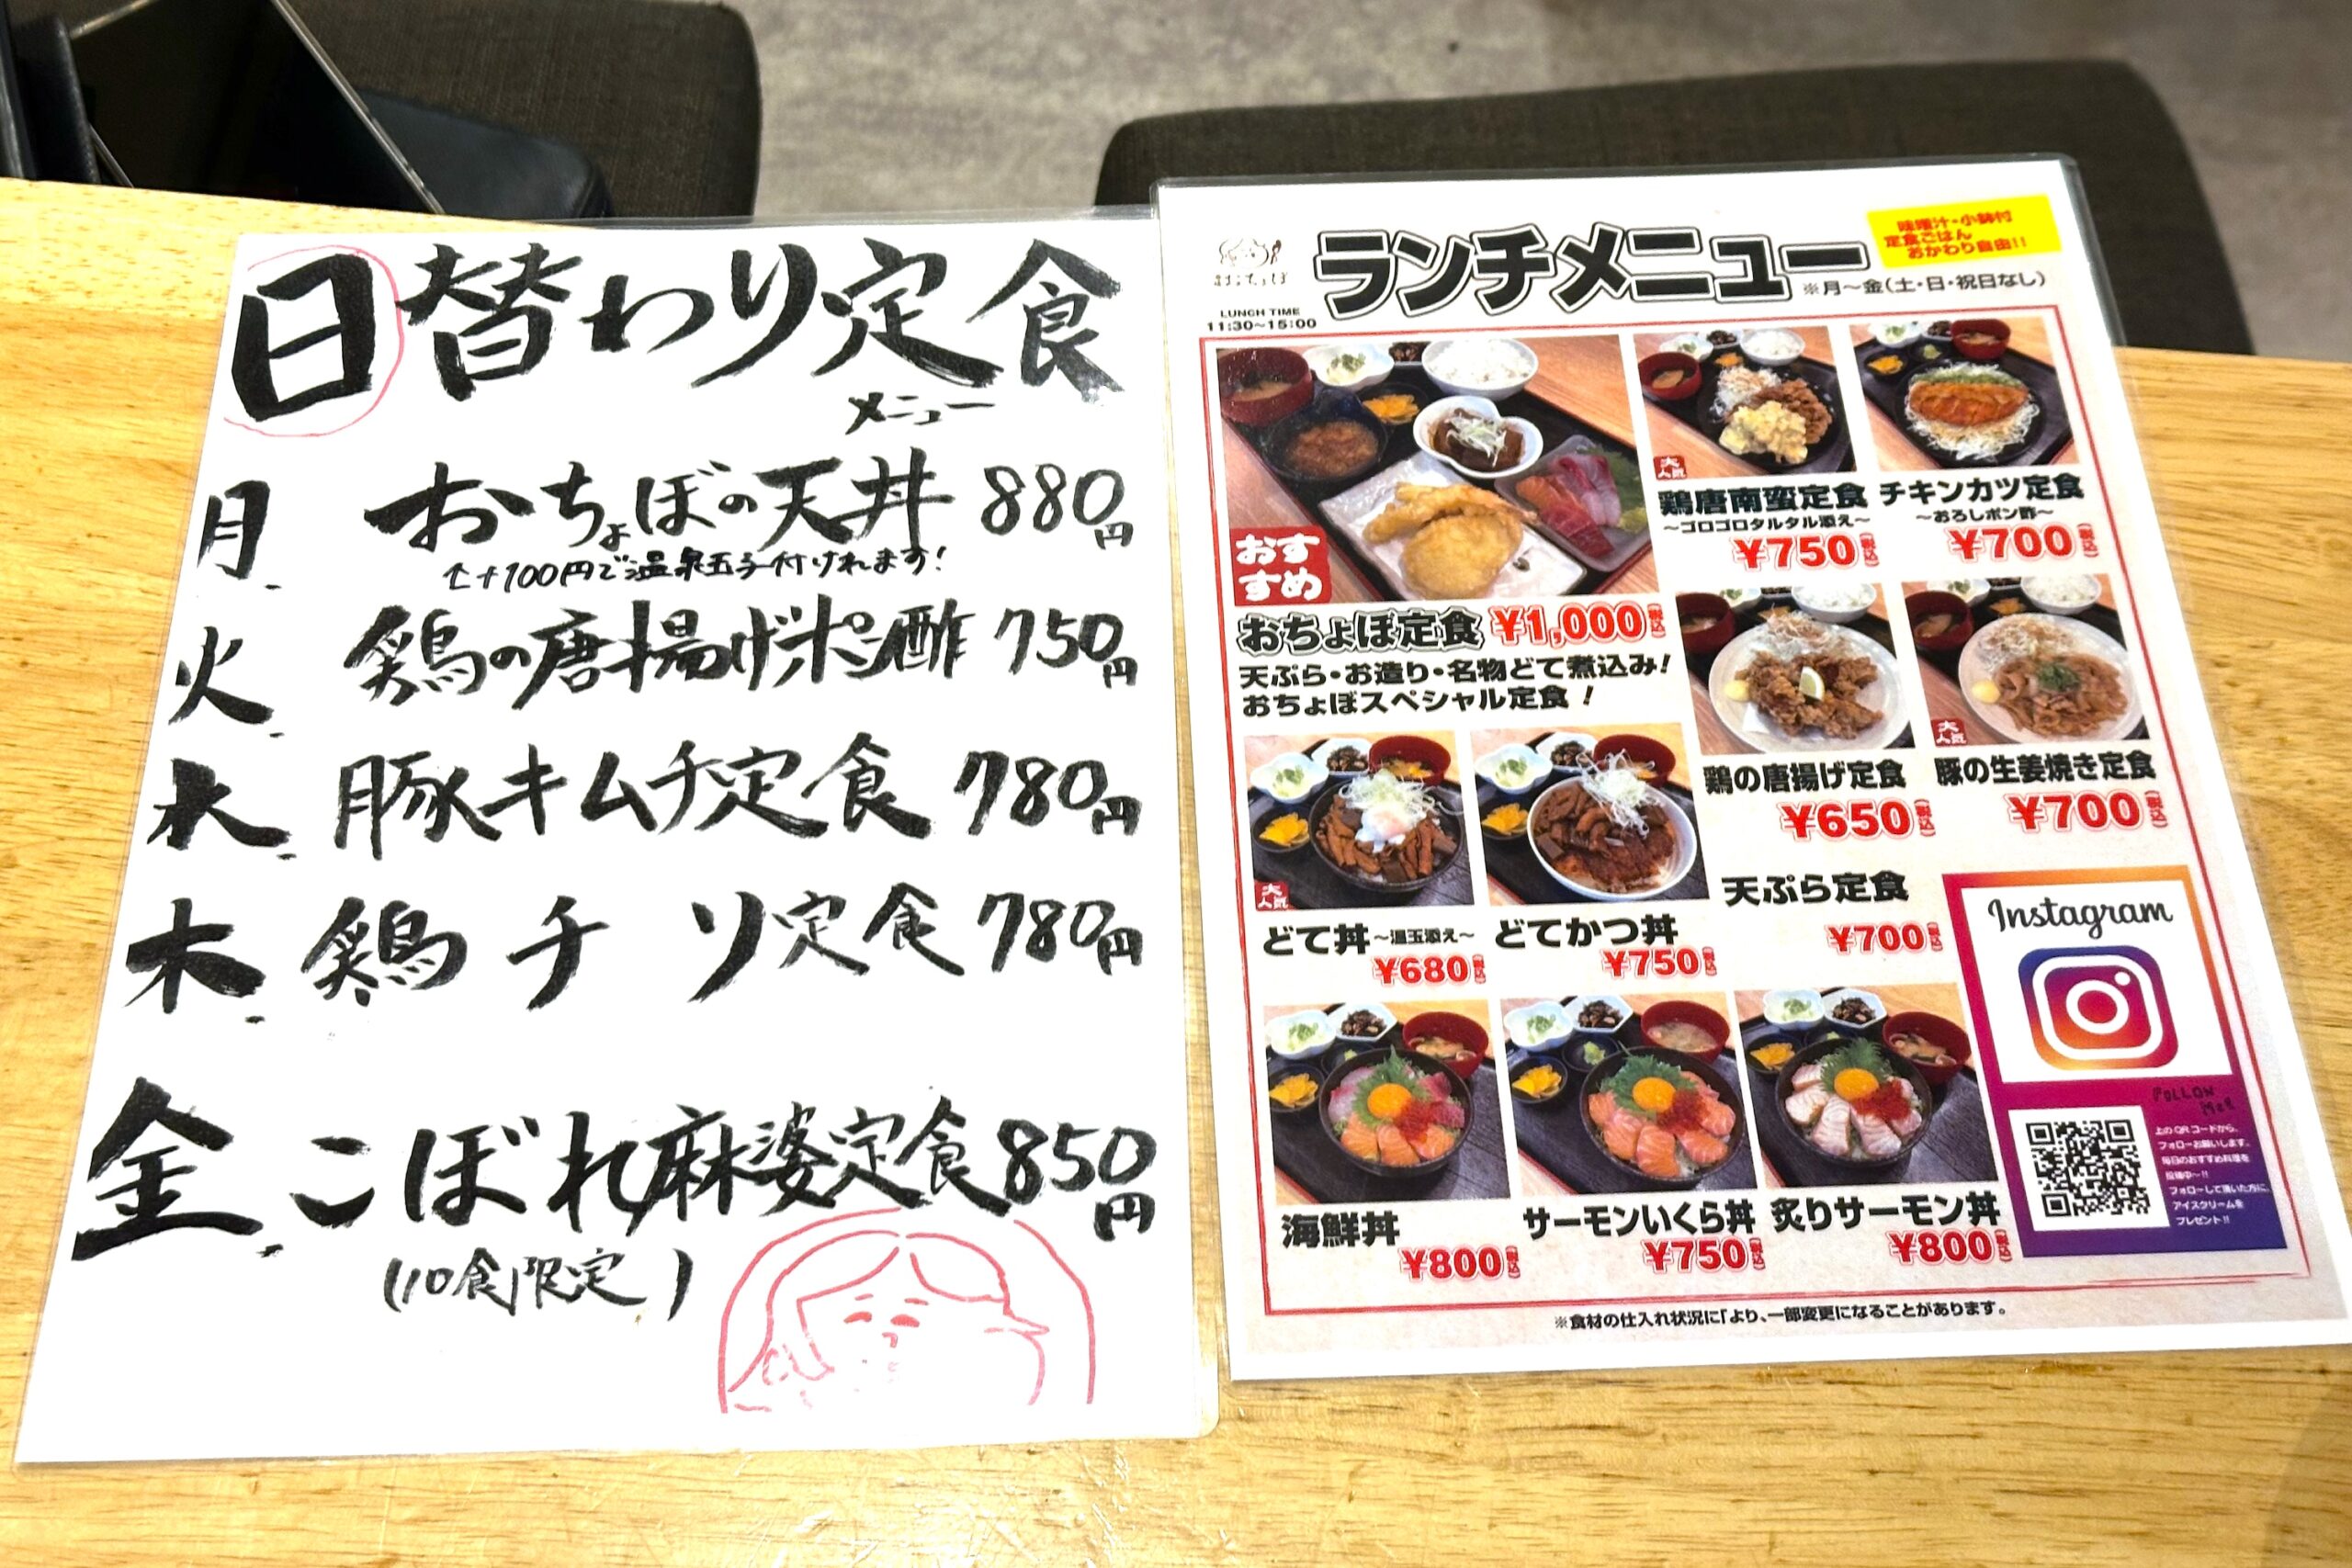 日替わり定食
メニュー
月. おちょぼの天丼 880円
↑+100円で温泉玉子付けれます!
火. 鶏の唐揚げポン酢 750円
水. 豚キムチ定食 780円
木. 鶏チリ定食 780円
金. こぼれ麻婆定食 850円
(10食限定)
おちょぼ
LUNCH TIME
11:30~15:00
ランチメニュー
※月~金(土・日・祝日なし)
味噌汁・小鉢付
定食ごはん
おかわり自由!!
おすすめ
おちょぼ定食 ¥1,000(税込)
天ぷら・お造り・名物どて煮込み!
おちょぼスペシャル定食!
大人気
鶏唐南蛮定食
~ゴロゴロタルタル添え~
¥750(税込)
チキンカツ定食
~おろしポン酢~
¥700(税込)
鶏の唐揚げ定食
¥650(税込)
大人気
豚の生姜焼き定食
¥700(税込)
大人気
どて丼~温玉添え~
¥680(税込)
どてかつ丼
¥750(税込)
天ぷら定食
¥700(税込)
海鮮丼
¥800(税込)
サーモンいくら丼
¥750(税込)
炙りサーモン丼
¥800(税込)
Instagram
FOLLOW
Me!
上のQRコードから、
フォローお願いします。
毎日のおすすめ料理を
投稿中~!!
フォローして頂いた方に、
アイスクリームを
プレゼント!!
※食材の仕入れ状況に「より、一部変更になることがあります。